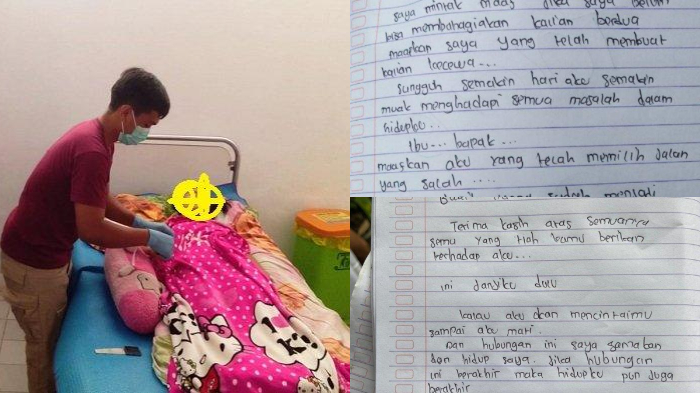 saya mintak maaf jika saya belum
bisa membahagiakan kalian berdua
maafkan saya yang telah membuat
kalian kecewa....
Sungguh semakin hari aku semakin
muak menghadapi semua masalah dalam
hidupku...
Ibu... bapak...
maafkan aku yang telah memilih jalan
yang salah.....
menjadi
Terima kasih atas semuanya
semu yang tlah kamu berikan
terhadap aku...
ini janjiku dulu
kalau aku akan mencintaimu
sampai aku mati.
Dan hubungan ini saya samakan
dgn hidup saya. Jika hubungan
ini berakhir maka hidupku pun juga
berakhir